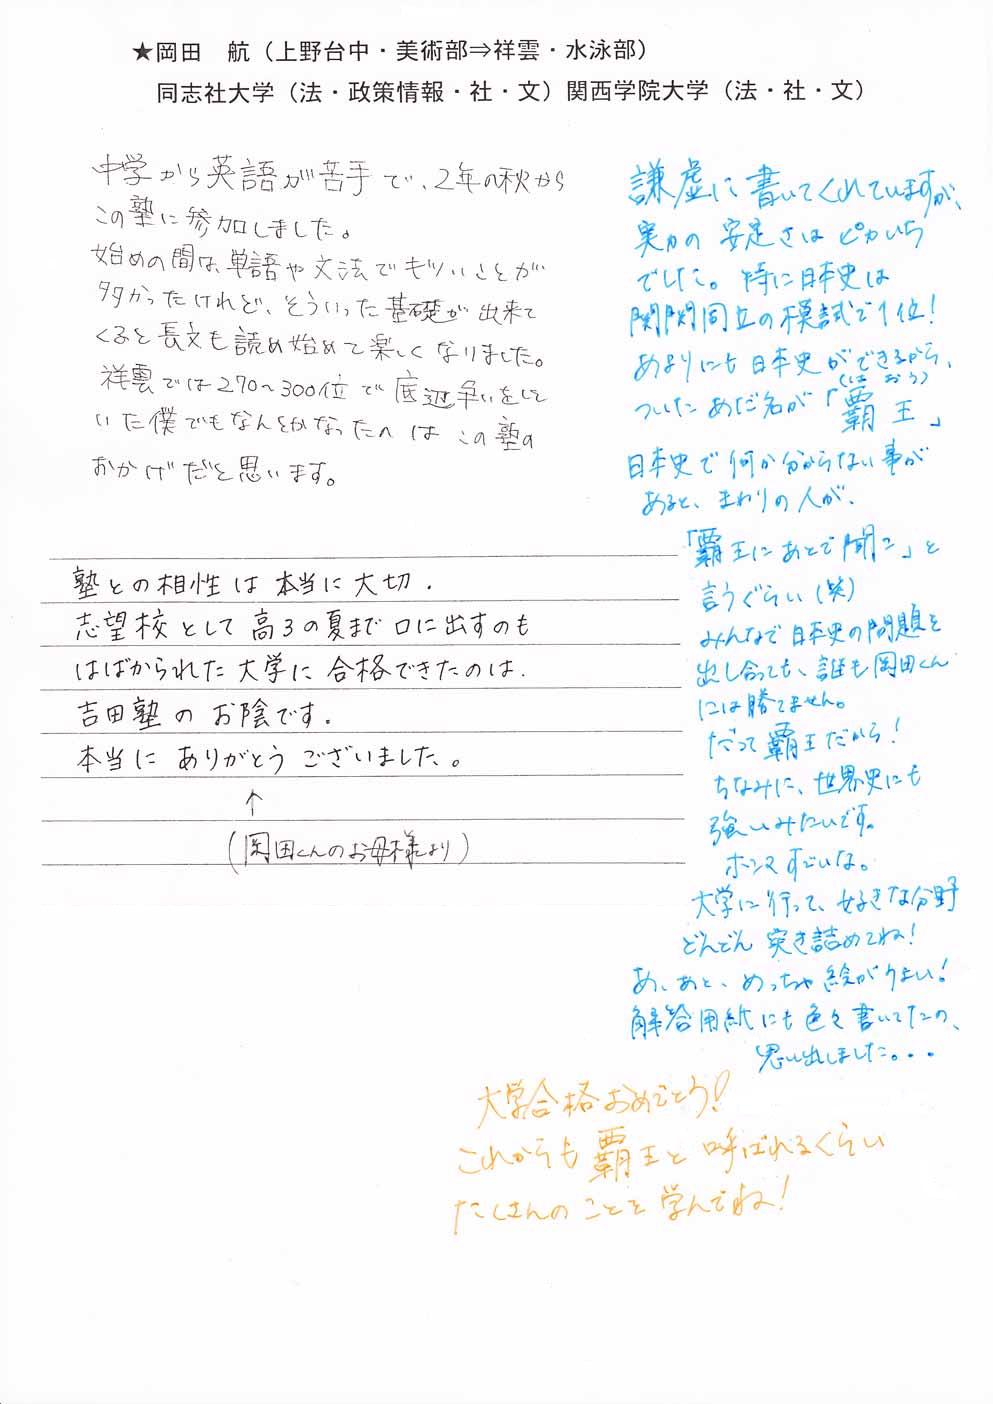 ★岡田　航（上野台中・美術部⇒祥雲・水泳部）
同志社大学（法・政策情報・社・文）関西学院大学（法・社・文）
中学から英語が苦手で、2年の秋から
この塾に参加しました。
始めの間は、単語や文法でキツいことが
多かったけれど、そういった基礎が出来て
くると長文も読め始めて楽しくなりました。
祥雲では270～300位で底辺争いをして
いた僕でもなんとかなったのはこの塾の
おかげだと思います。
塾との相性は本当に大切.
志望校として高3の夏まで口に出すのも
はばかられた大学に合格できたのは.
吉田塾のお陰です.
本当にありがとうございました。
↑
(岡田くんのお母様より)
謙虚に書いてくれていますが、
実力の安定さはピカいち
でした。特に日本史は
関関同立の模試で1位!
あまりにも日本史ができるから、
(はおう)
ついたあだ名が「覇王」
日本史で何か分からない事が
あると、まわりの人が、
「覇王にあとで聞こ」と
言うぐらい(笑)
みんなで日本史の問題を
出し合っても、誰も岡田くん
には勝てません。
だって覇王だから!
ちなみに、世界史にも
強いみたいです。
ホンマすごいな。
大学に行って、好きな分野
どんどん突き詰めてね!
あ、あと、めっちゃ絵がうまい!
解答用紙にも色々書いてたの、
思い出しました。・・
大学合格おめでとう!
これからも覇王と呼ばれるくらい
たくさんのことを学んでね!